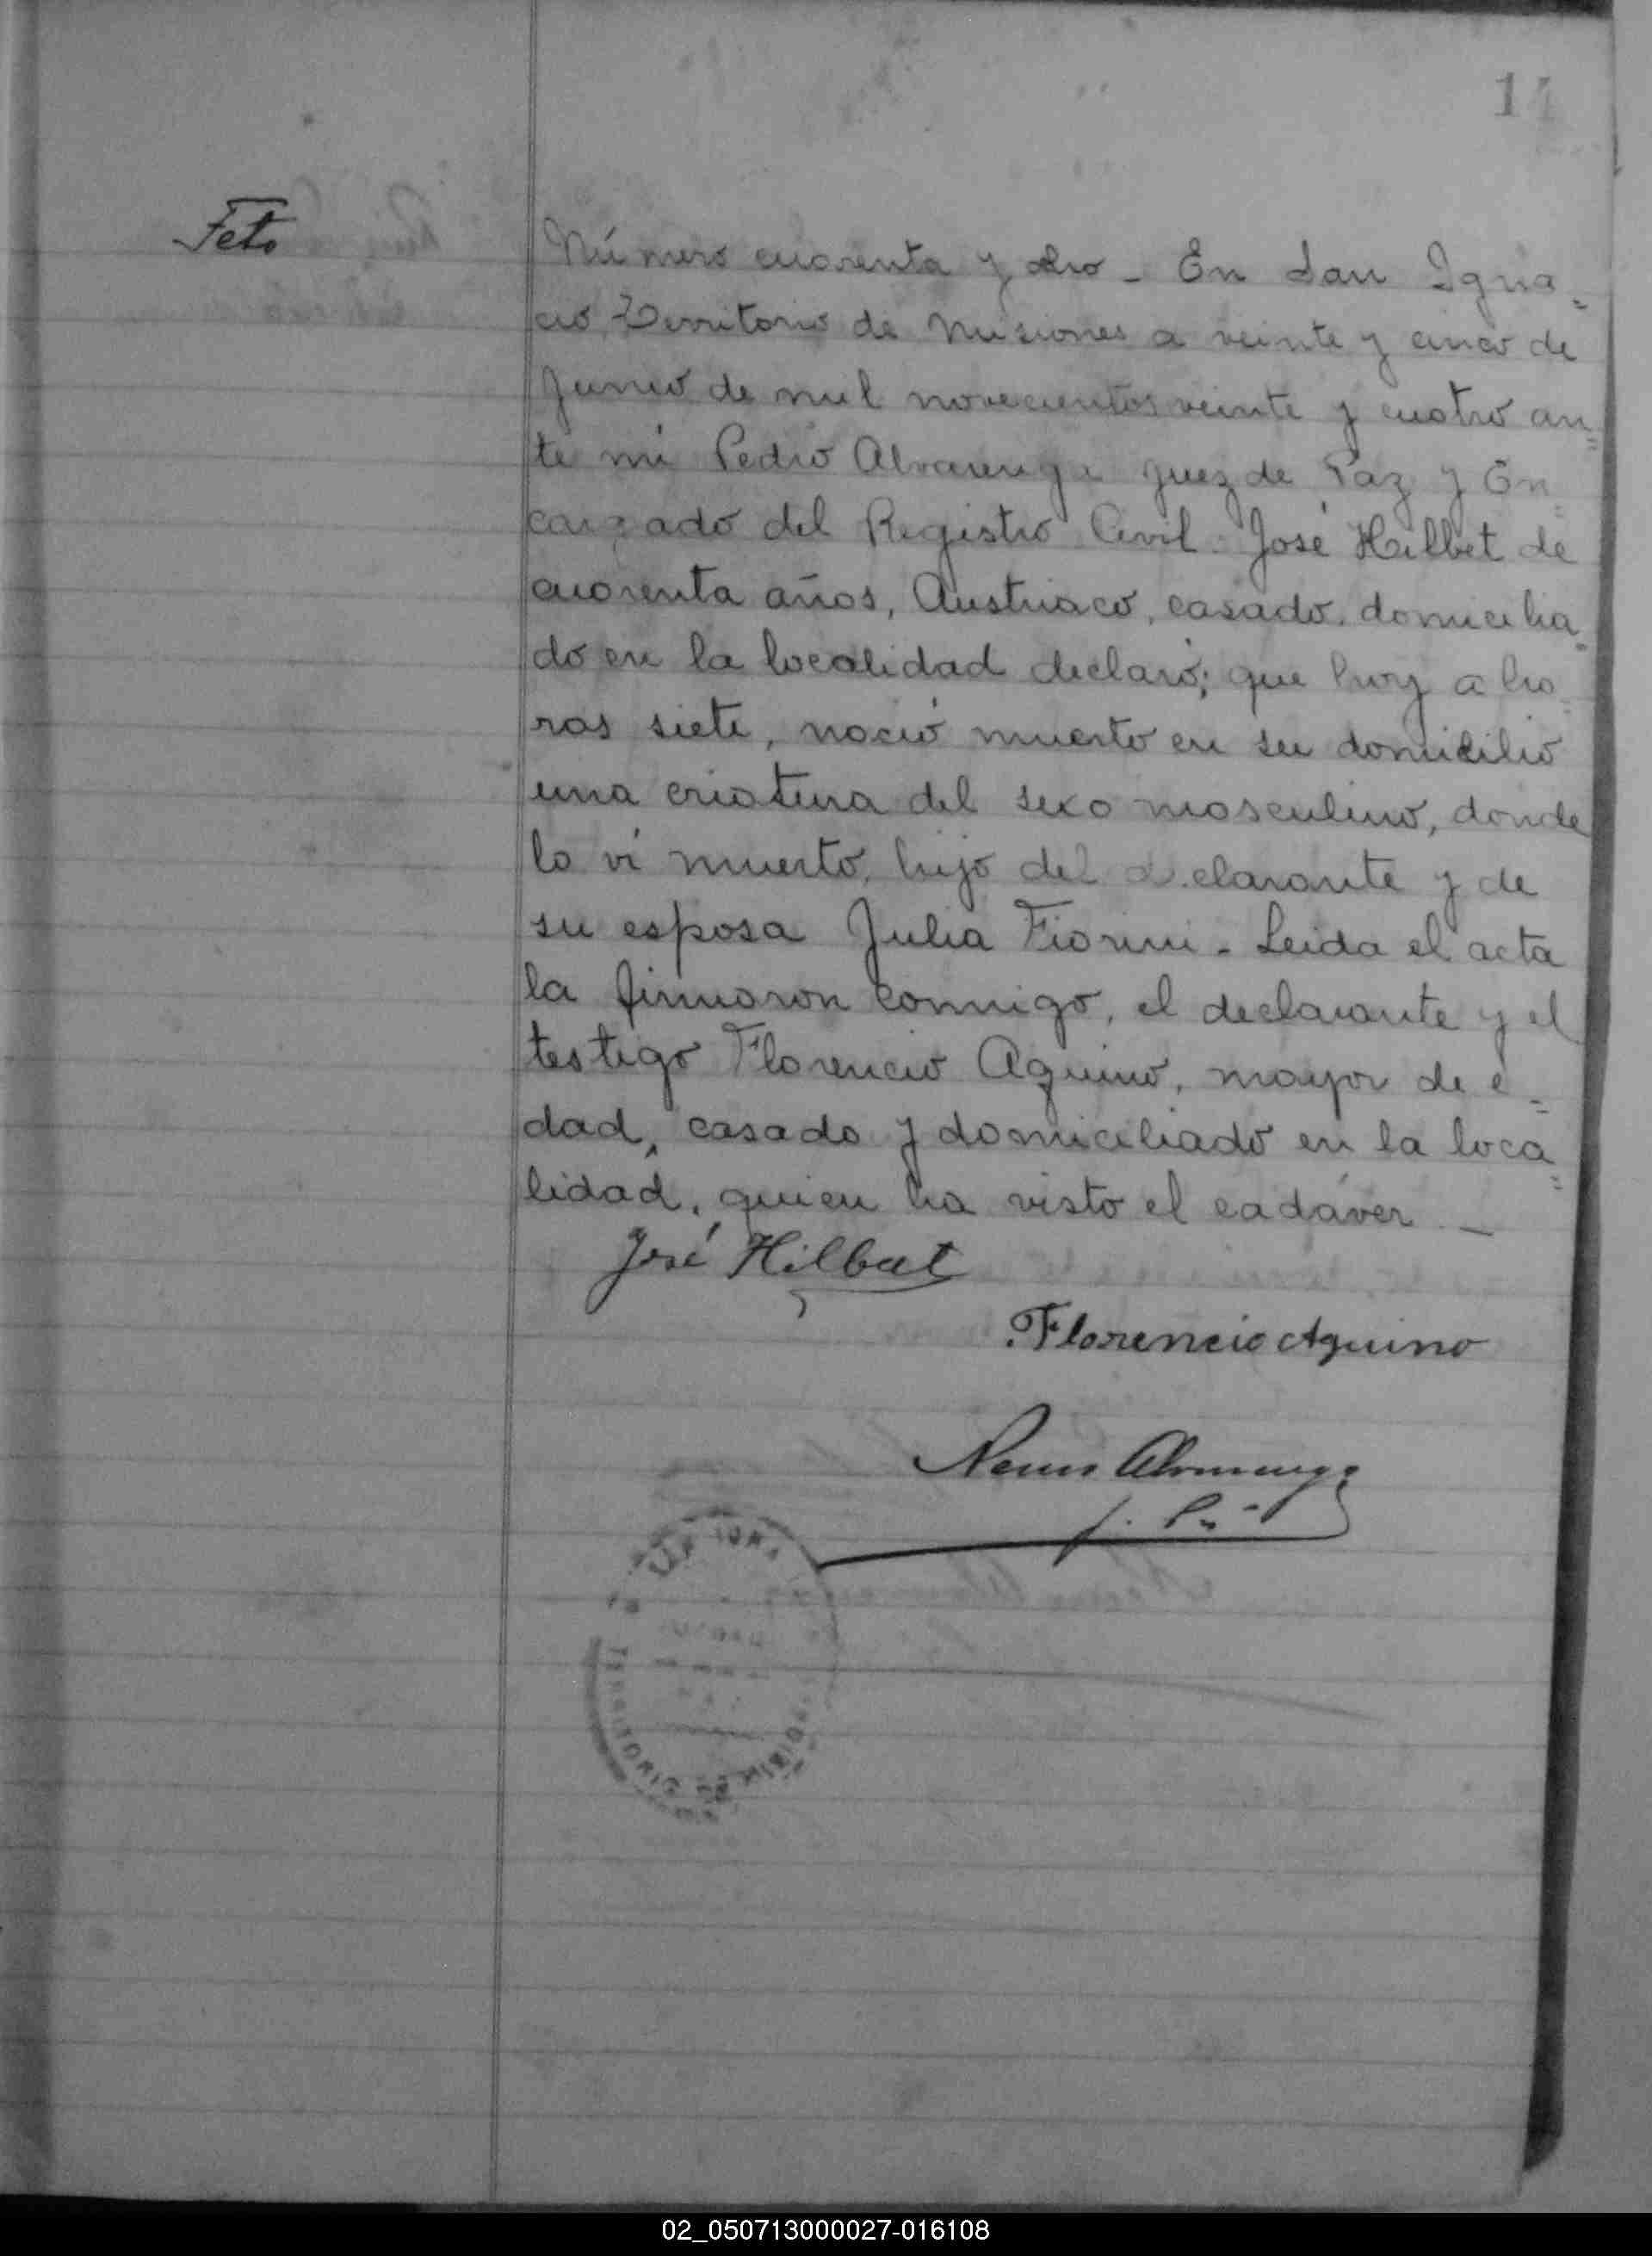 14
Feto
Número cuarenta y ocho - En San Igna-
cio Territorio de Misiones a veinte y cinco de
Junio de mil novecientos veinte y cuatro an=
te mi Pedro Alvarenga Juez de Paz y En=
cargado del Registro Civil. José Hilbet de
cuarenta años, Austriaco, casado, domicilia=
do en la localidad declaró; que hoy a ho=
ras siete, nació muerto en su domicilio
una criatura del sexo masculino, donde
lo ví muerto, hijo del declarante y de
su esposa Julia Fiorini - Leida el acta
la firmaron conmigo, el declarante y el
testigo Florencio Aquino, mayor de e=
dad, casado y domiciliado en la loca=
lidad, quien ha visto el cadáver —
José Hilbet
Florencio Aquino
Alvarenga
TERRITORIO DE MISIONES
02_050713000027-016108